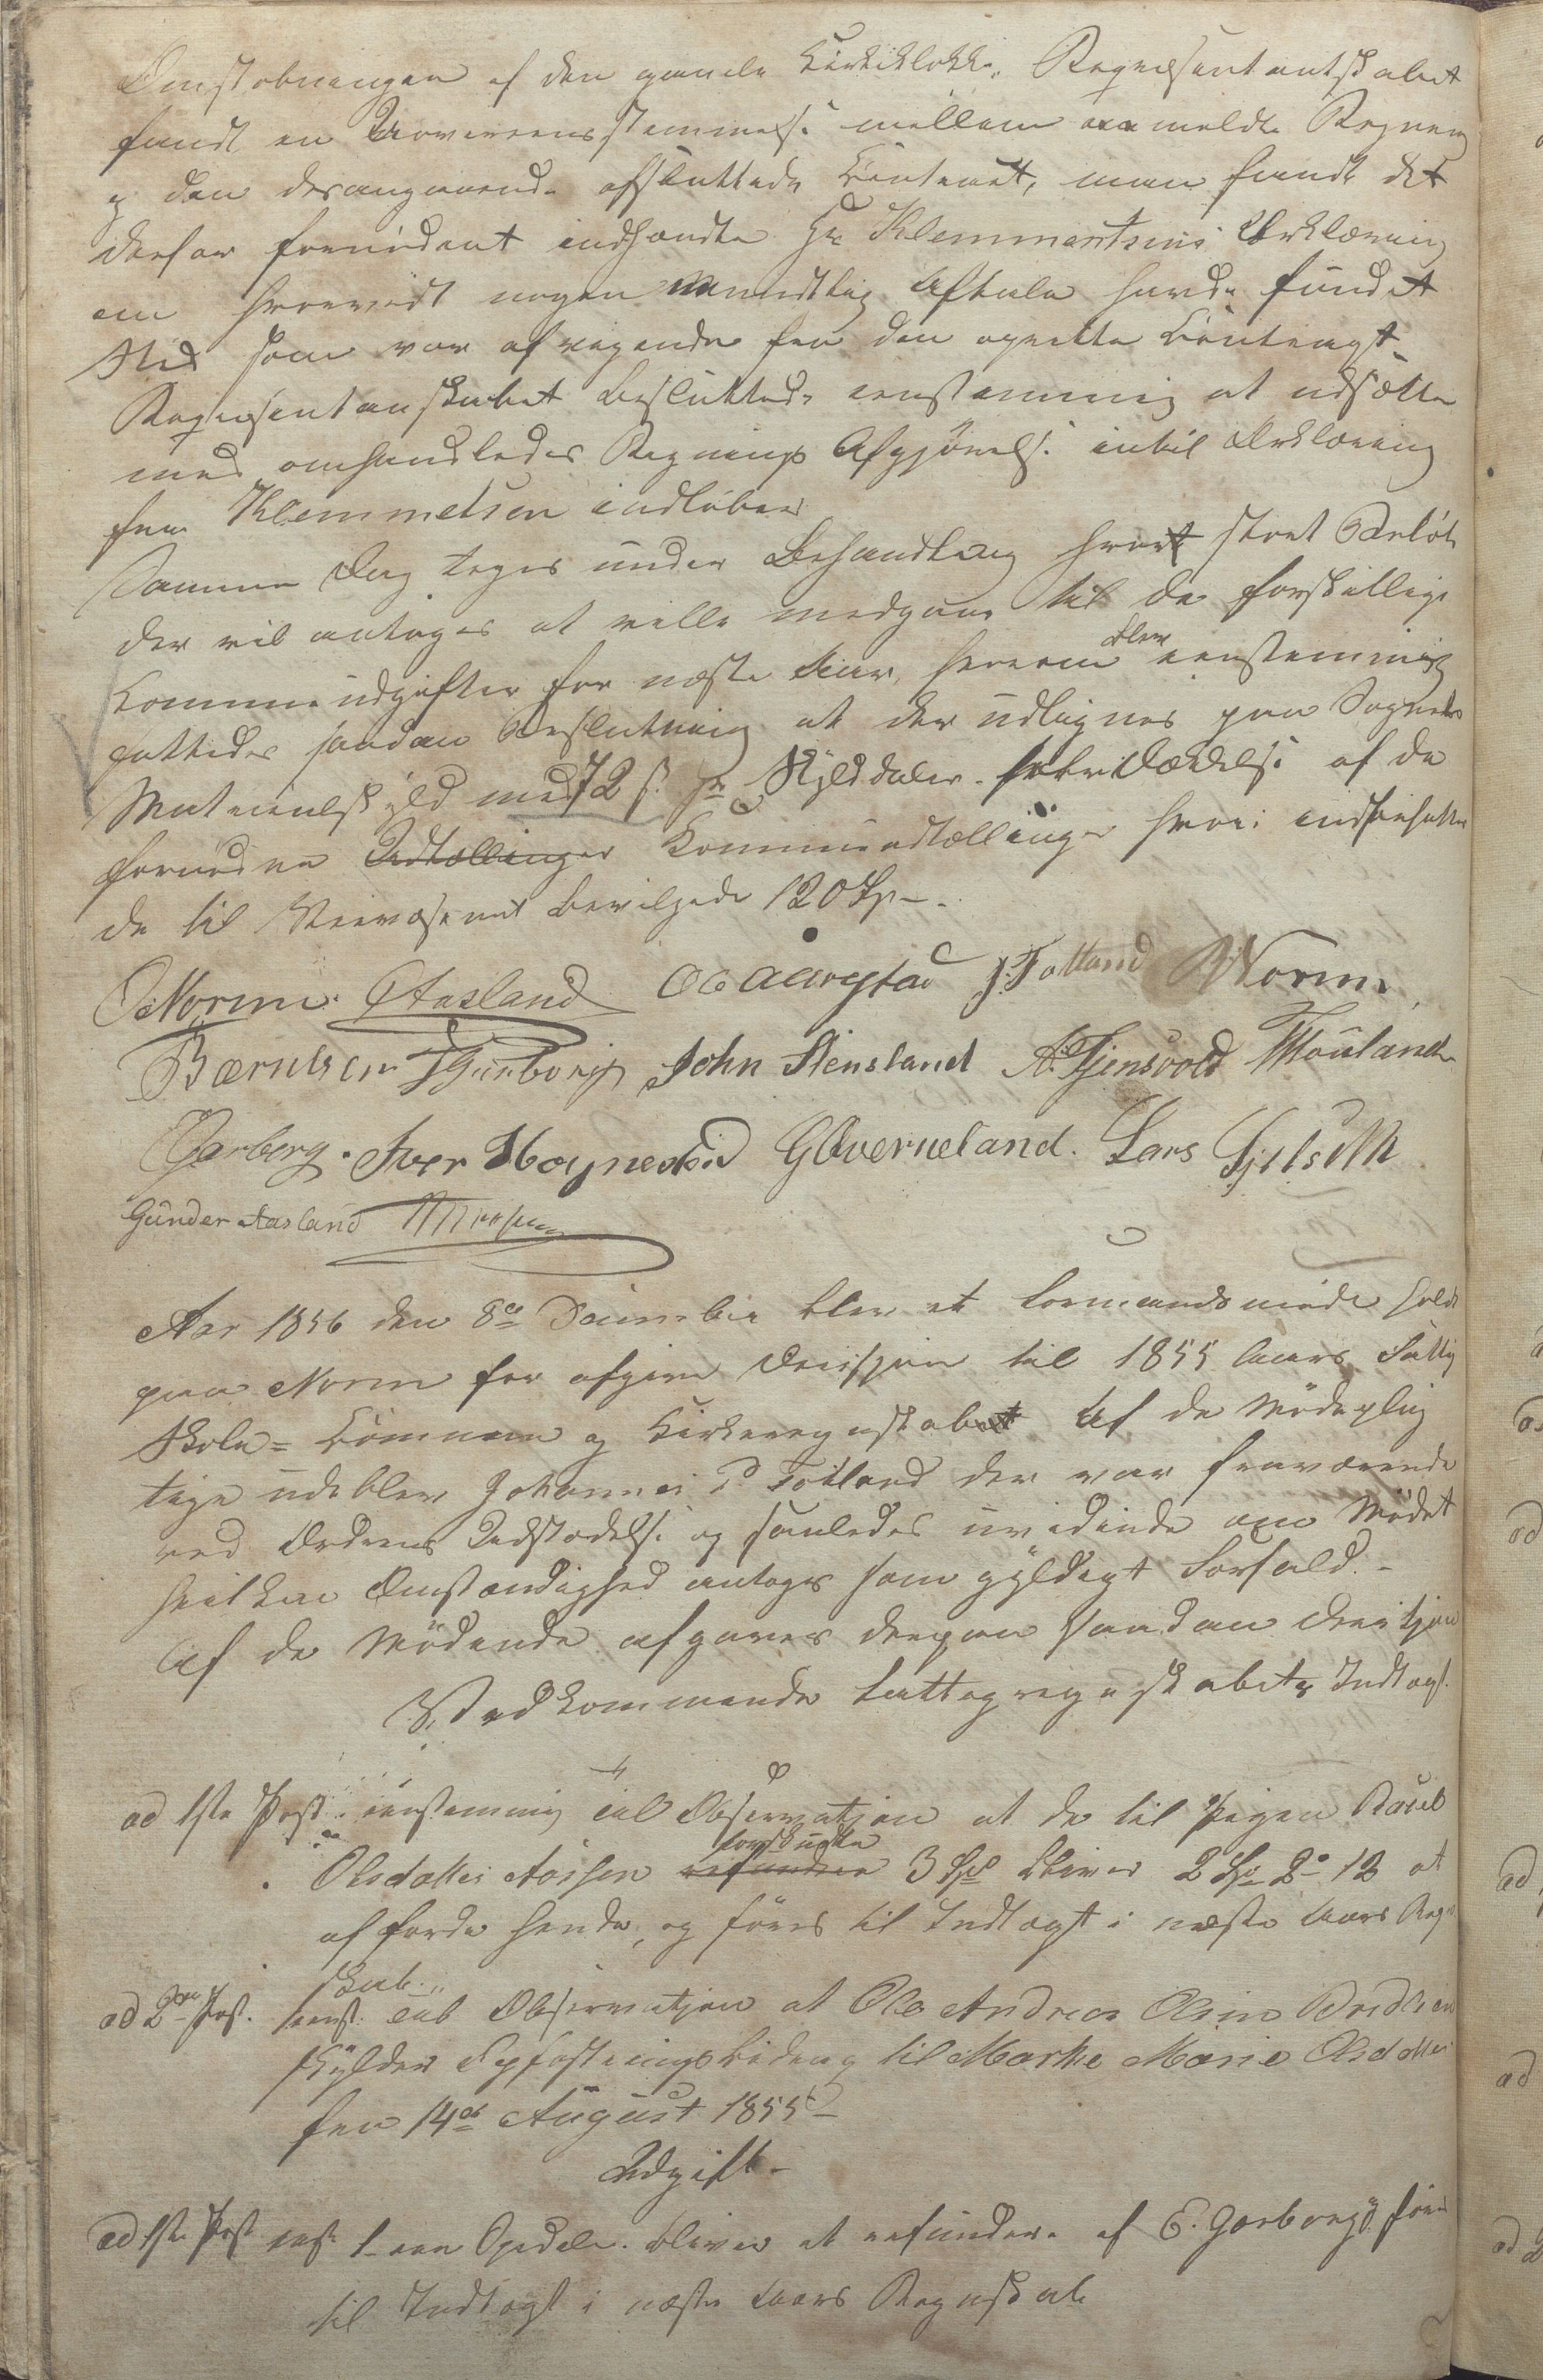 Omstøbningen af den gamle Kirkeklokke. Repræsentantskabet
fandt en Uoverensstemmelse mellem anmeldte Regning
og den desangaaende afsluttede Contract, man fandt det
derfor fornødent indhændte Hr Klemmentsens Erklæring
om hvorvidt nogen mundtlig Aftale havde fundet
Sted som var afvigende fra den oprettte Contragt.
Repræsentanskabet besluttede eenstemmig at udsætte
med omhandledes Regnings Afgjørelse intil Erklæring
fra Klemmetsen indløber
Samme Dag toges under Behandling hvort stort Beløb
der vil antages at ville medgaae til de forskjellige
Communeudgifter for næste Aar, hvorom blev eenstemmig
fattedes saadan Beslutning at der udlignes paa Sognets
Matricul skyld med 72 s. pr Skylddaler til Dækkelse af de
fornødne Udtællinger Kommuneudtællinger hvori indbefattes
de til Veivæsenet bevilgede 120 Sp –.
O Norem. Aasland O G Aarestad J. Totland A Norem,
Bærntsen T Garborg John Stensland A. Tjensvold T Mauland
E Garborg. Iver Høynes G Overueland. Lars
Gunder Aasland
Aar 1856 den 8de December blev et Formandsmøde holdt
paa Norem for afgive Decisjon til 1855 Aars Fattig
Skole= Commune og Kirkeregnskabet Af de Mødeplig
tige udeblev Johannes P Totland der var fraværende
ved Ordrens Udstædelse og saaledes uvidende om Mødet
hvilken Omstændighed antages som gyldigt Forfald. –
Af de Mødende afgaves derpaa saadan Decisjon
Vedkommende Fattigregnskabets Indtægt.
ad 1ste Post. eenstemmig Observatjon at de til Pigen
Olsdatter Aassen refunderer forskudte 3 Spd bliver 2 Spd 2 – 12 at
affordre hende, og føres til Indtægt i næste Aars Regn
skab. „
ad 2den Post. eenst: Observatjon at Ole Andreas Olsen
skylder Opfostringsbidrag til Marthe Marie Olsdatter
fra 14de August 1855 –
Udgift –
ad 1ste Post eenst. 1 – een Opdaler. bliver at refundere af E. Garborg og føres
til Indtægt i næste Aars Regnskab